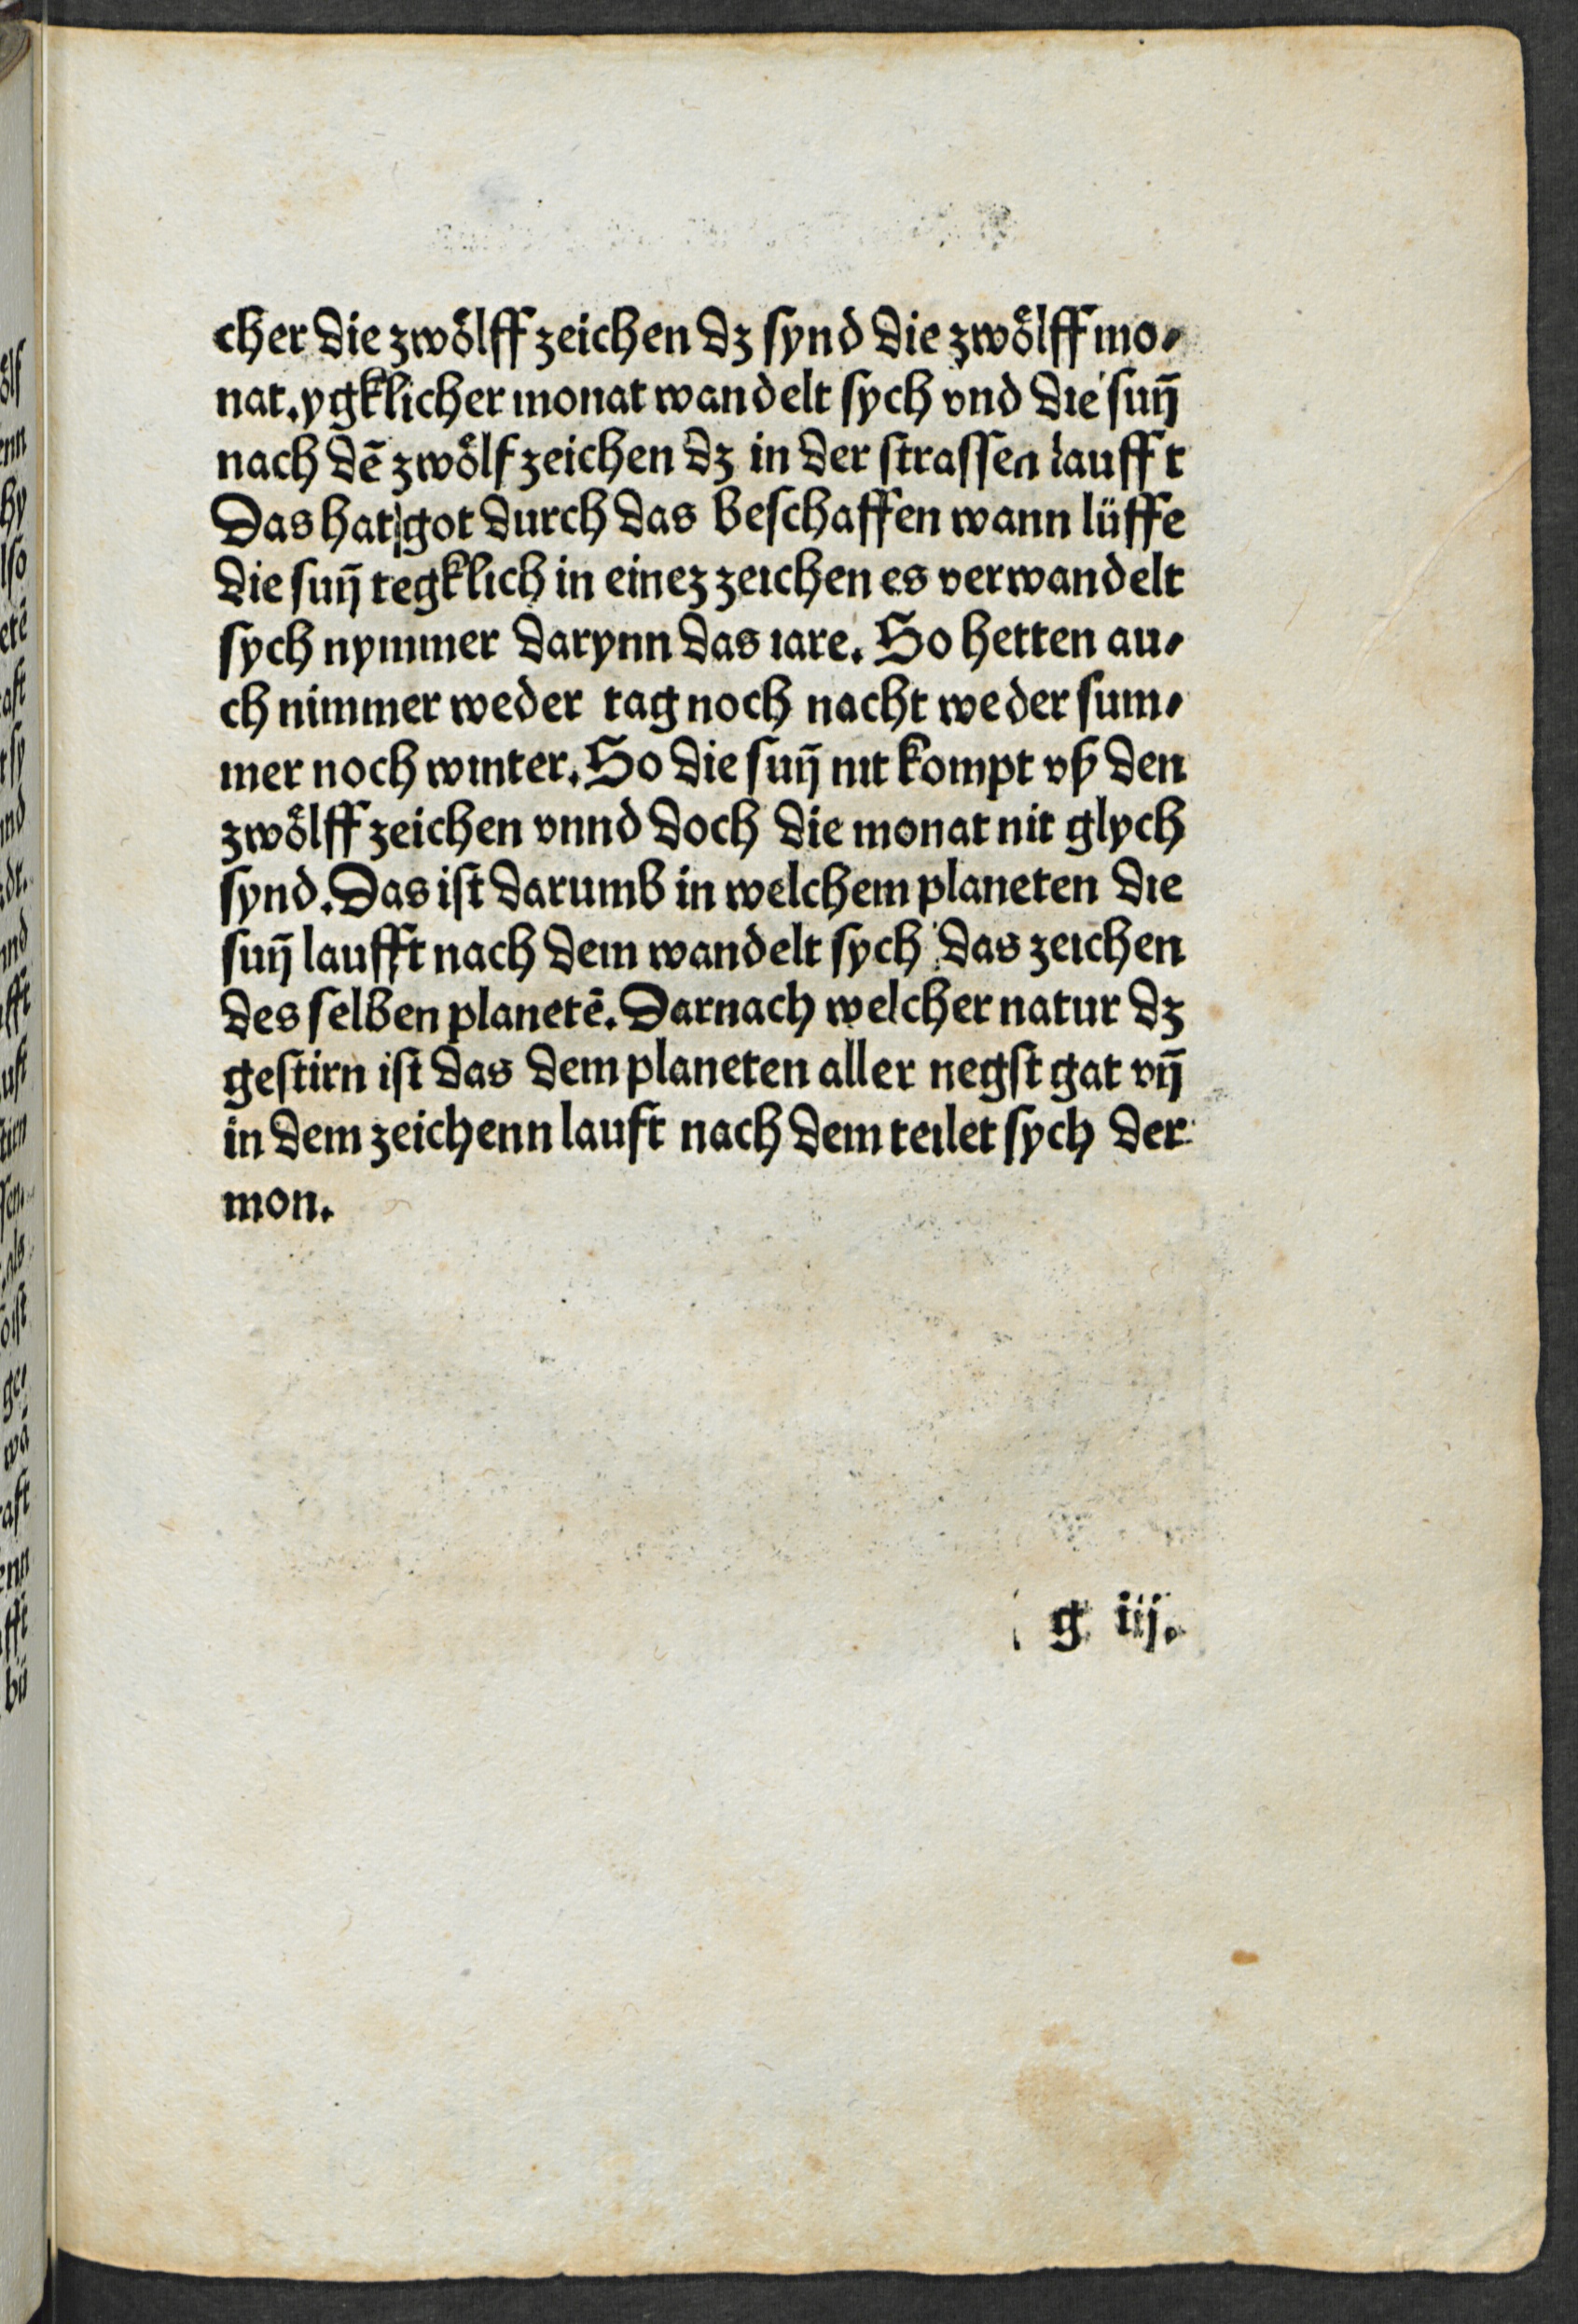 cher die zwoͤlff zeichen dz ſynd die zwoͤlff mo⸗
nat. ygklicher monat wandelt ſych vnd die ſun̄
nach dē zwoͤlf zeichen dz in der ſtraſſen laufft
Das hat got durch das beſchaffen wann lüffe
die ſun̄ tegklich in einez zeichen es verwandelt
ſych nymmer darynn das iare. So hetten au⸗
ch nimmer weder tag noch nacht weder ſum⸗
mer noch winter. So die ſun̄ nit kompt vß den
zwoͤlff zeichen vnnd doch die monat nit glych
ſynd. Das iſt darumb in welchem planeten die
ſun̄ laufft nach dem wandelt ſych das zeichen
des ſelben planetē. Darnach welcher natur dz
geſtirn iſt das dem planeten aller negſt gat vn̄
in dem zeichenn lauft nach dem teilet ſych der
mon.
g iij.